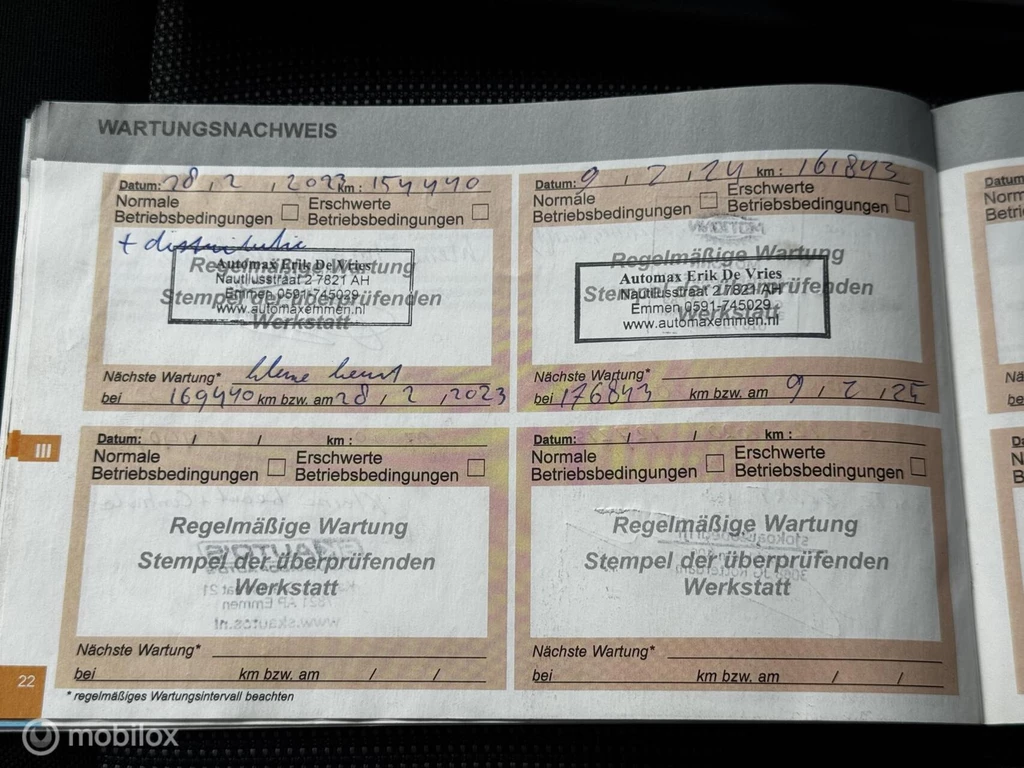 WARTUNGSNACHWEIS
Datum: 28, 2, 2023 km: 154440
Normale Betriebsbedingungen
Erschwerte Betriebsbedingungen
+ distributie
Regelmäßige Wartung
Stempel der überprüfenden
Werkstatt
Automax Erik De Vries
Nautilusstraat 2 7821 AH
Emmen 0591-745029
www.automaxemmen.nl
Nächste Wartung* kleine beurt
bei 169440 km bzw. am 28, 2, 2023
Datum: 9, 2, 24 km: 161843
Normale Betriebsbedingungen
Erschwerte Betriebsbedingungen
Regelmäßige Wartung
Stempel der überprüfenden
Werkstatt
Automax Erik De Vries
Nautilusstraat 2 7821 AH
Emmen 0591-745029
www.automaxemmen.nl
Nächste Wartung*
bei 176843 km bzw. am 9, 2, 25
III
Datum: / / km :
Normale Betriebsbedingungen
Erschwerte Betriebsbedingungen
Regelmäßige Wartung
Stempel der überprüfenden
Werkstatt
Nächste Wartung*
bei km bzw. am / /
Datum: / / km :
Normale Betriebsbedingungen
Erschwerte Betriebsbedingungen
Regelmäßige Wartung
Stempel der überprüfenden
Werkstatt
Nächste Wartung*
bei km bzw. am / /
22
* regelmäßiges Wartungsintervall beachten
mobilox